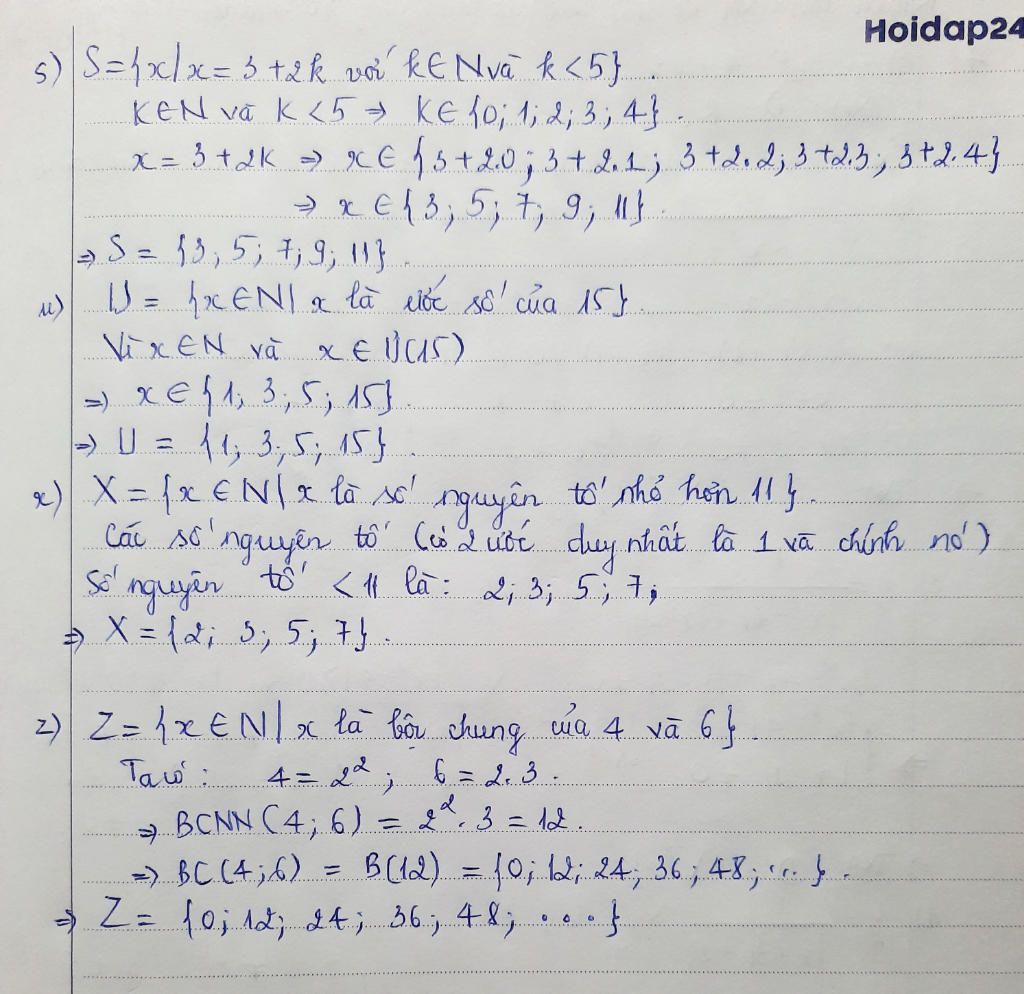 Hoidap24
s) S={x/x=3+2k với k∈N và k<5}.
K∈N và K<5 ⇒ K∈{0; 1; 2; 3; 4}.
x=3+2K ⇒ x∈ {3+2.0; 3+2.1; 3+2.2; 3+2.3; 3+2.4}
⇒ x∈{3; 5; 7; 9; 11}.
⇒ S = {3; 5; 7; 9; 11}.
u) U = {x∈N| x là ước số của 15}.
Vì x∈N và x∈Ư(15)
⇒ x∈{1; 3; 5; 15}.
⇒ U = {1; 3; 5; 15}.
x) X = {x∈N| x là số nguyên tố nhỏ hơn 11}.
Các số nguyên tố (có 2 ước duy nhất là 1 và chính nó)
Số nguyên tố <11 là: 2; 3; 5; 7;
⇒ X = {2; 3; 5; 7}.
z) Z = {x∈N| x là bội chung của 4 và 6}.
Ta có: 4 = 2²; 6 = 2.3.
⇒ BCNN(4; 6) = 2².3 = 12.
⇒ BC(4;6) = B(12) = {0; 12; 24; 36; 48; ...}.
⇒ Z = {0; 12; 24; 36; 48; ...}